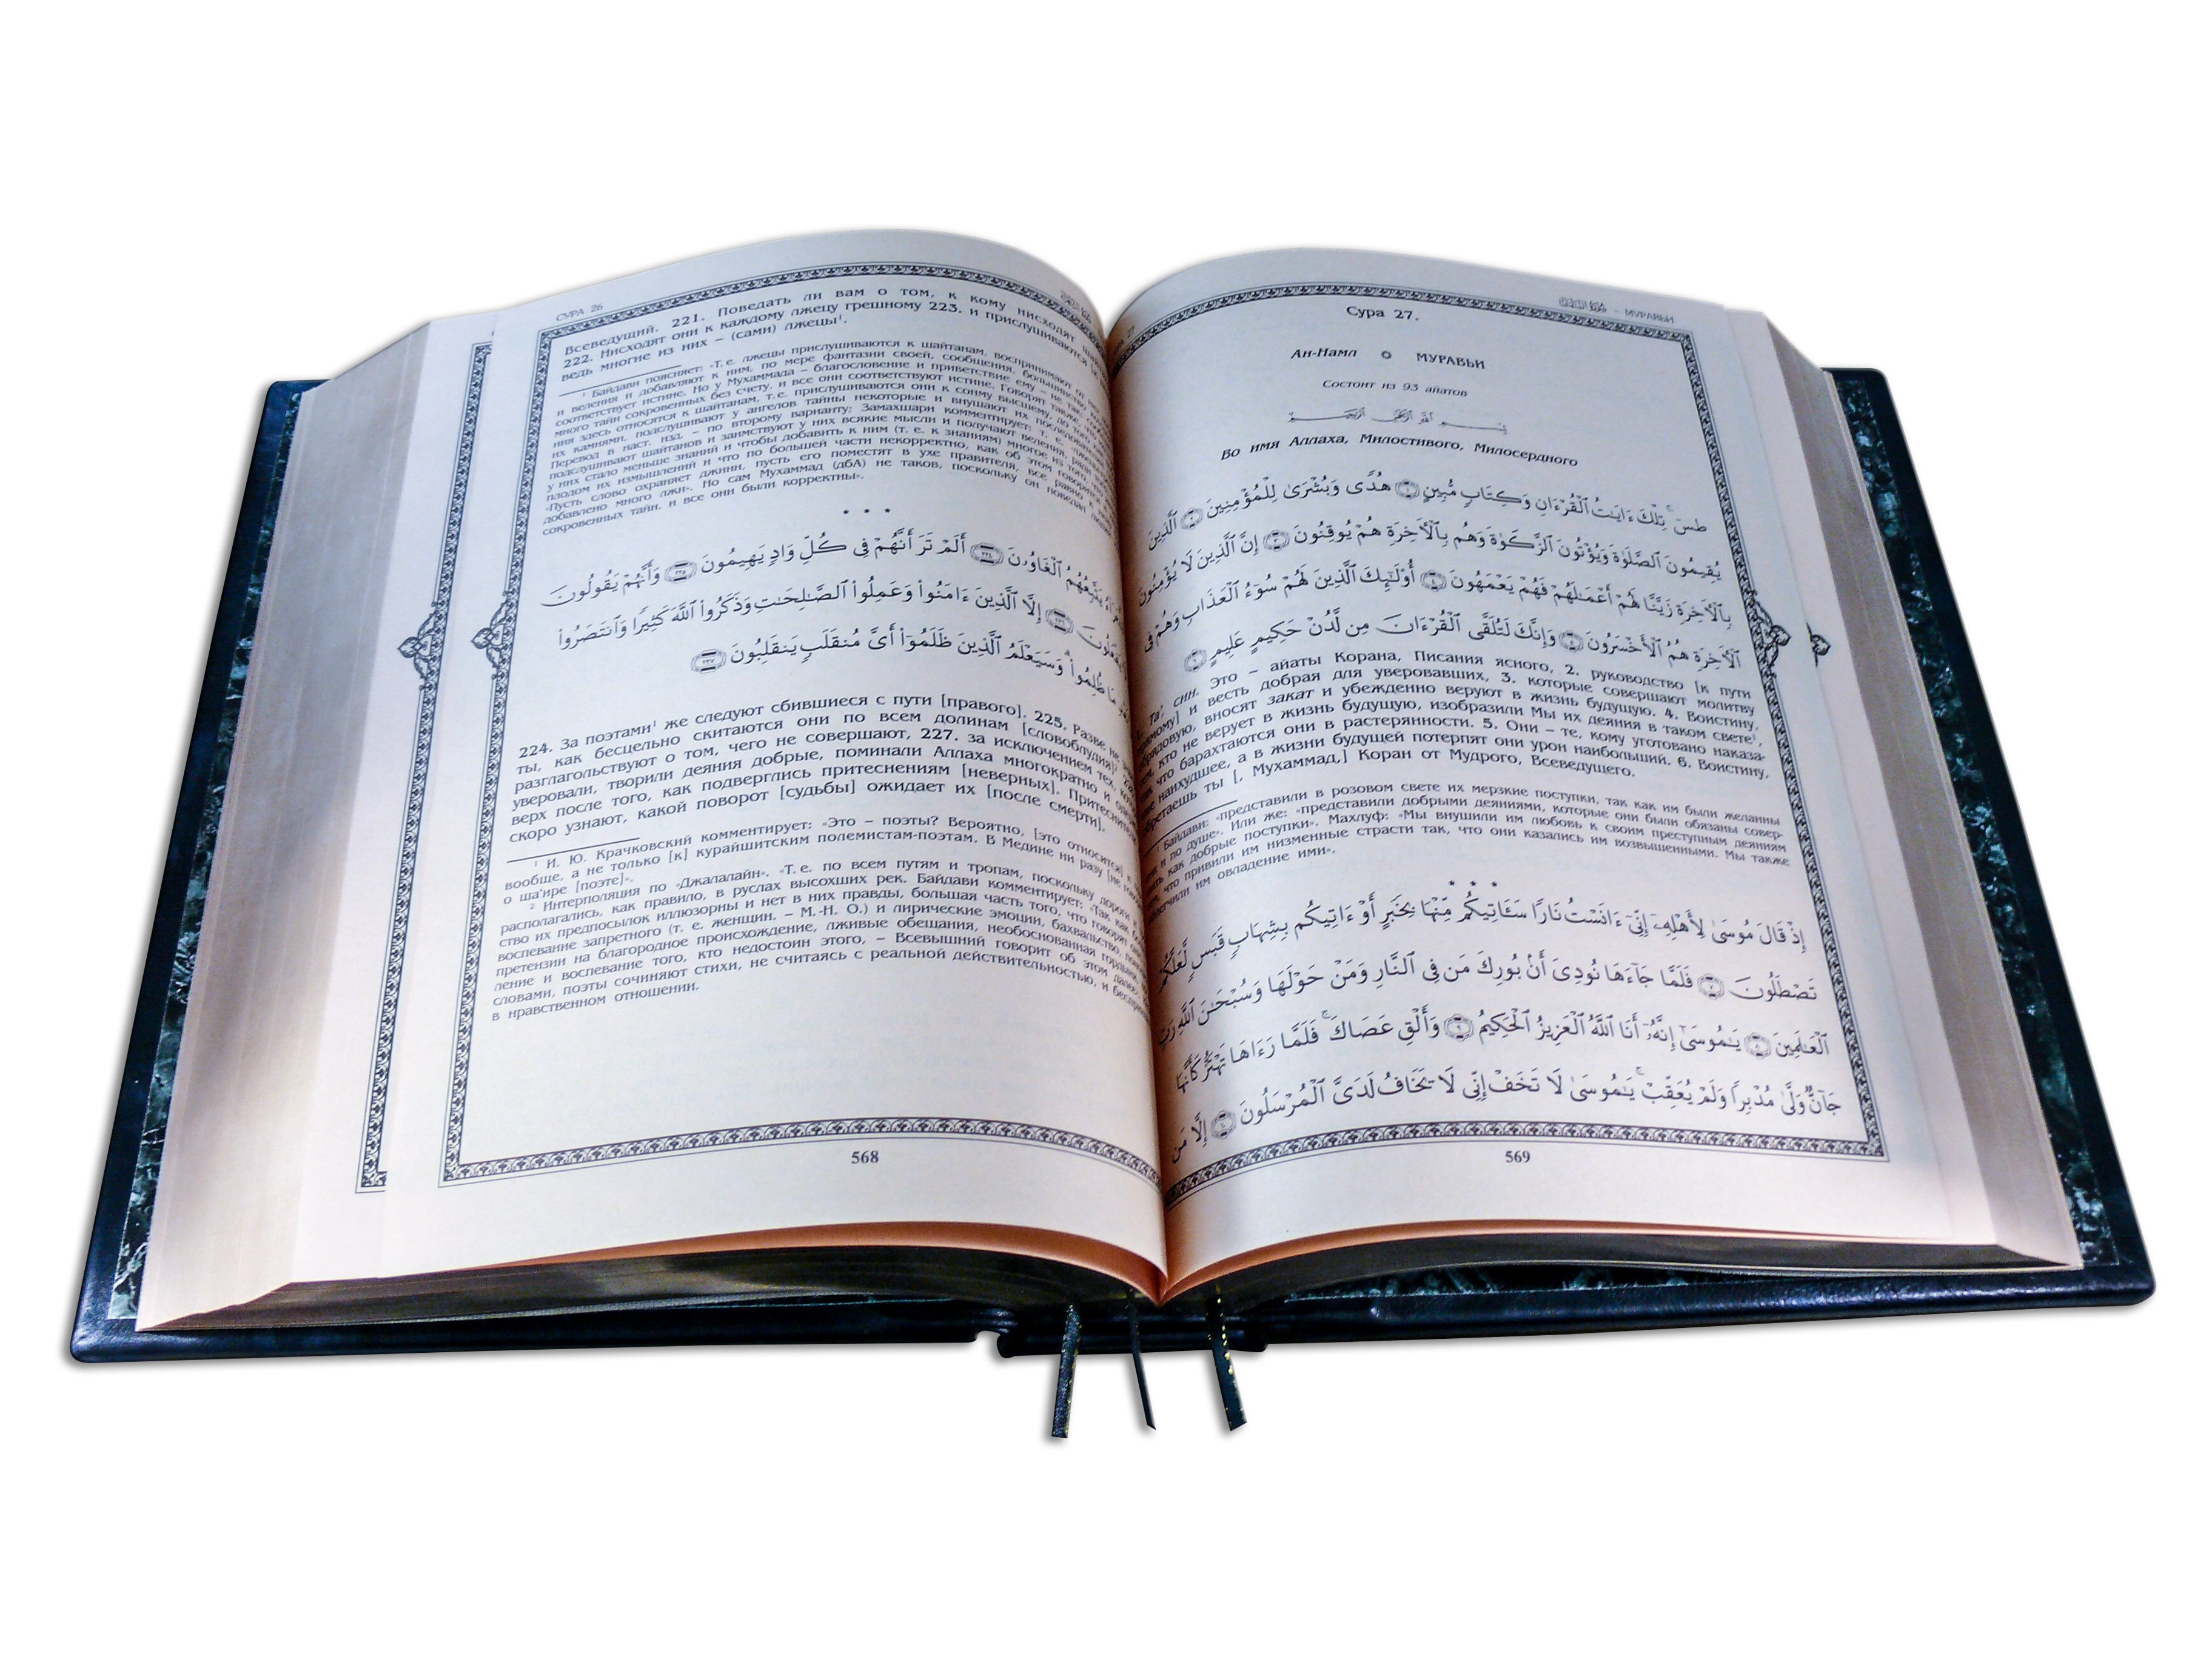 СУРА 26
Всеведущий. 221. Поведать ли вам о том, к кому нисходят
222. Нисходят они к каждому лжецу грешному 223. и прислушиваются
ведь многие из них – (сами) лжецы¹.
¹ Байдави поясняет: «Т. е. лжецы прислушиваются к шайтанам, воспринимают от них
и веления и добавляют к ним, по мере фантазии своей, сообщения, большинство
соответствует истине. Но у Мухаммада – благословение и приветствие ему – не так:
много тайн сокровенных без счету, и все они соответствуют истине. Говорят также, что
ния здесь относятся к шайтанам, т. е. прислушиваются они к сонму высшему, до того
их камнями, подслушивают у ангелов тайны некоторые и внушают их
Перевод в наст. изд. – по второму варианту; Замахшари комментирует: т. е. «лжецы
подслушивают шайтанов и заимствуют у них всякие мысли и получают веления, ради
у них стало меньше знаний и чтобы добавить к ним (т. е. к знаниям) многое из того,
плодом их измышлений и что по большей части некорректно, как об этом говорится
«Пусть слово охраняет джинн, пусть его поместят в ухе правителя, все равно к нему
добавлено много лжи». Но сам Мухаммад (дбА) не таков, поскольку он поведал людям
сокровенных тайн, и все они были корректны».
* * *
يَتَّبِعُهُمُ ٱلْغَاوُۥنَ ٢٢٤ أَلَمْ تَرَ أَنَّهُمْ فِى كُلِّ وَادٍ يَهِيمُونَ ٢٢٥ وَأَنَّهُمْ يَقُولُونَ
٢٢٦ إِلَّا ٱلَّذِينَ ءَامَنُوا۟ وَعَمِلُوا۟ ٱلصَّـٰلِحَـٰتِ وَذَكَرُوا۟ ٱللَّهَ كَثِيرًا وَٱنتَصَرُوا۟
مَا ظُلِمُوا۟ ۗ وَسَيَعْلَمُ ٱلَّذِينَ ظَلَمُوٓا۟ أَىَّ مُنقَلَبٍ يَنقَلِبُونَ ٢٢٧
224. За поэтами¹ же следуют сбившиеся с пути [правого]. 225. Разве не
ты, как бесцельно скитаются они по всем долинам [словоблудия]²
разглагольствуют о том, чего не совершают, 227. за исключением тех,
уверовали, творили деяния добрые, поминали Аллаха многократно и
верх после того, как подверглись притеснениям [неверных]. Притеснители
скоро узнают, какой поворот [судьбы] ожидает их [после смерти].
¹ И. Ю. Крачковский комментирует: «Это – поэты? Вероятно, [это относится] к
вообще, а не только [к] курайшитским полемистам-поэтам. В Медине ни разу [не
о ша'ире [поэте]».
² Интерполяция по «Джалалайн». «Т. е. по всем путям и тропам, поскольку дороги
располагались, как правило, в руслах высохших рек. Байдави комментирует: «Так как
ство их предпосылок иллюзорны и нет в них правды, большая часть того, что говорят они
воспевание запретного (т. е. женщин. – М.-Н. О.) и лирические эмоции, бахвальство,
претензии на благородное происхождение, лживые обещания, необоснованная гордыня,
ление и воспевание того, кто недостоин этого, – Всевышний говорит об этом
словами, поэты сочиняют стихи, не считаясь с реальной действительностью, и
в нравственном отношении.
568
– МУРАВЬИ
Сура 27.
Ан-Намл ۞ МУРАВЬИ
Состоит из 93 айатов
بسم الله الرحمن الرحيم
Во имя Аллаха, Милостивого, Милосердного
طسٓ ۚ تِلْكَ ءَايَـٰتُ ٱلْقُرْءَانِ وَكِتَابٍ مُّبِينٍ ١ هُدًى وَبُشْرَىٰ لِلْمُؤْمِنِينَ ٢ ٱلَّذِينَ
يُقِيمُونَ ٱلصَّلَوٰةَ وَيُؤْتُونَ ٱلزَّكَوٰةَ وَهُم بِٱلْـَٔاخِرَةِ هُمْ يُوقِنُونَ ٣ إِنَّ ٱلَّذِينَ لَا يُؤْمِنُونَ
بِٱلْـَٔاخِرَةِ زَيَّنَّا لَهُمْ أَعْمَـٰلَهُمْ فَهُمْ يَعْمَهُونَ ٤ أُو۟لَـٰٓئِكَ ٱلَّذِينَ لَهُمْ سُوٓءُ ٱلْعَذَابِ وَهُمْ فِى
ٱلْـَٔاخِرَةِ هُمُ ٱلْأَخْسَرُونَ ٥ وَإِنَّكَ لَتُلَقَّى ٱلْقُرْءَانَ مِن لَّدُنْ حَكِيمٍ عَلِيمٍ ٦
Та', син. Это – айаты Корана, Писания ясного, 2. руководство [к пути
прямому] и весть добрая для уверовавших, 3. которые совершают молитву
обрядовую, вносят закат и убежденно веруют в жизнь будущую. 4. Воистину,
кто не верует в жизнь будущую, изобразили Мы их деяния в таком свете¹,
что барахтаются они в растерянности. 5. Они – те, кому уготовано наказа-
наихудшее, а в жизни будущей потерпят они урон наибольший. 6. Воистину,
обретаешь ты [, Мухаммад,] Коран от Мудрого, Всеведущего.
¹ Байдави: «представили в розовом свете их мерзкие поступки, так как им были желанны
и по душе». Или же: «представили добрыми деяниями, которые они были обязаны совер-
шить как добрые поступки». Махлуф: «Мы внушили им любовь к своим преступным деяниям
что привили им низменные страсти так, что они казались им возвышенными. Мы также
им овладение ими».
* * *
إِذْ قَالَ مُوسَىٰ لِأَهْلِهِۦٓ إِنِّىٓ ءَانَسْتُ نَارًا سَـَٔاتِيكُم مِّنْهَا بِخَبَرٍ أَوْ ءَاتِيكُم بِشِهَابٍ قَبَسٍ لَّعَلَّكُمْ
تَصْطَلُونَ ٧ فَلَمَّا جَآءَهَا نُودِىَ أَنۢ بُورِكَ مَن فِى ٱلنَّارِ وَمَنْ حَوْلَهَا وَسُبْحَـٰنَ ٱللَّهِ رَبِّ
ٱلْعَـٰلَمِينَ ٨ يَـٰمُوسَىٰٓ إِنَّهُۥٓ أَنَا ٱللَّهُ ٱلْعَزِيزُ ٱلْحَكِيمُ ٩ وَأَلْقِ عَصَاكَ ۚ فَلَمَّا رَءَاهَا تَهْتَزُّ كَأَنَّهَا
جَآنٌّ وَلَّىٰ مُدْبِرًا وَلَمْ يُعَقِّبْ ۚ يَـٰمُوسَىٰ لَا تَخَفْ إِنِّى لَا يَخَافُ لَدَىَّ ٱلْمُرْسَلُونَ ١٠ إِلَّا مَن
569